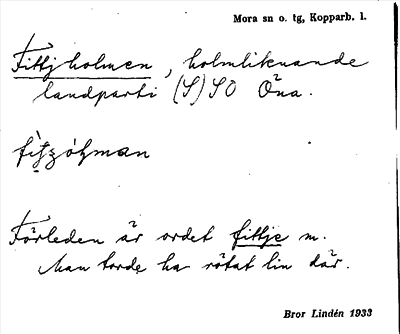 Mora sn o. tg, Kopparb. l.
Fittjholmen, holmliknande
landparti (S) SO Öna.
Förleden är ordet fittje n.
Man torde ha rötat lin där.
Bror Lindén 1933